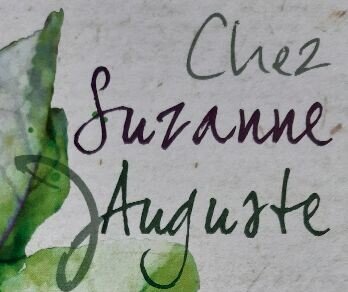 Chez
Suzanne
Auguste